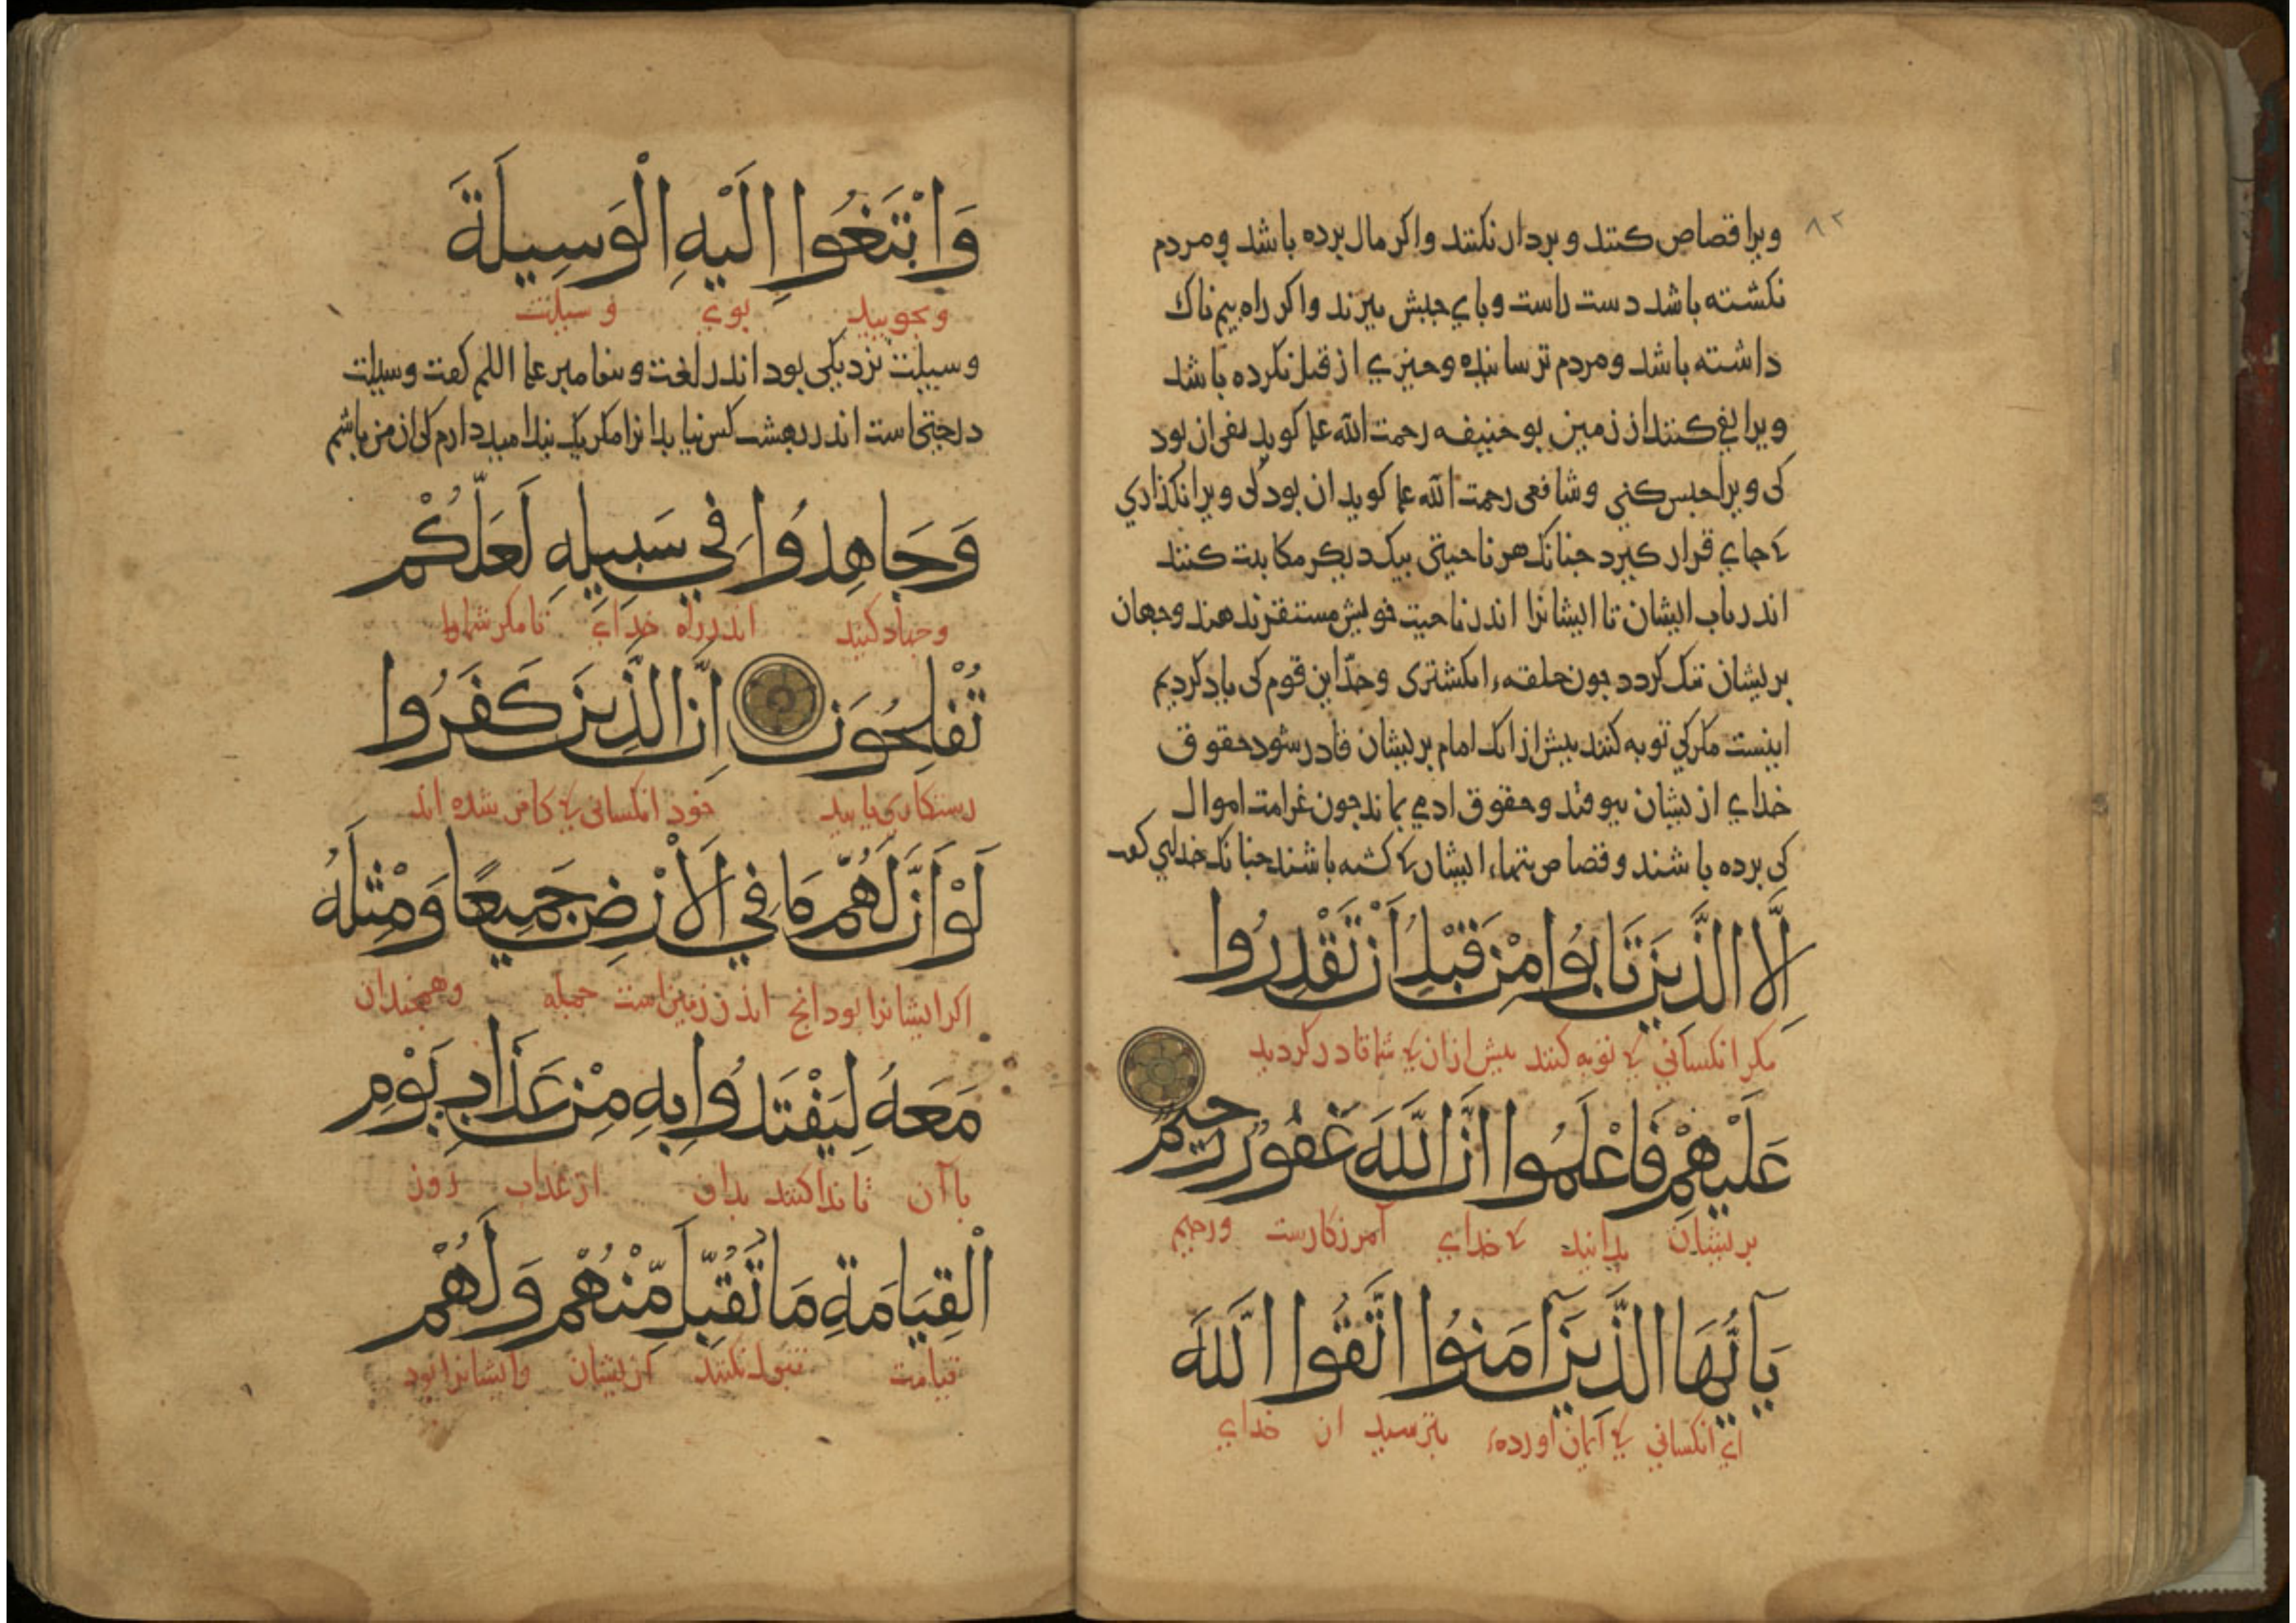 ٨٢
ويرا قصاص كنند و بردار نكنند واكر مال برده باشد ومردم
نكشته باشد دست راست وباي جبش ببرند واكر راه بيم ناك
داشته باشد ومردم ترسانيده وجيزي از قبل نكرده باشد
ويرا نفي كنند از زمين بوحنيفه رحمت الله علىه كويد نفي ان بود
كى ويرا حبس كني وشافعى رحمت الله علىه كويد ان بود كى ويرا نكذاري
كه جاي قرار كيرد جنانك هر ناحيتى بيكديكر مكاتبت كنند
اندر باب ايشان تا ايشانرا اندر ناحيت خويش مستقر ندهند وجهان
بريشان تنك كردد جون حلقهء انكشتري وحد اين قوم كى ياد كرديم
اينست مكر كي توبه كنند بيش ازانك امام بريشان قادر شود حقوق
خداي ازيشان بيوفتد وحقوق ادمي بماند جون غرامت اموال
كى برده باشند وقصاص تنهاء ايشان كه كشته باشند جنانك خداي كفت
إِلَّا الَّذِينَ تَابُوا مِنْ قَبْلِ أَنْ تَقْدِرُوا
مكر انكساني كه توبه كنند بيش ازان كه شما قادر كرديد
عَلَيْهِمْ فَاعْلَمُوا أَنَّ اللَّهَ غَفُورٌ رَحِيمٌ
بريشان بدانيد كه خداي آمرزكارست ورحيم
يَا أَيُّهَا الَّذِينَ آمَنُوا اتَّقُوا اللَّهَ
اي انكساني كه ايمان اورده‌ء بترسيد از خداي
وَابْتَغُوا إِلَيْهِ الْوَسِيلَةَ
وبجوييد بوي وسيلت
وسيلت نزديكى بود اندر لغت وبيغامبر علىه السلم كفت وسيلت
درجتى است اندر بهشت كس نيابد انرا مكر يك بنده اميد دارم كى ان من باشم
وَجَاهِدُوا فِي سَبِيلِهِ لَعَلَّكُمْ
وجهاد كنيد اندر راه خداي تا مكر شما
تُفْلِحُونَ إِنَّ الَّذِينَ كَفَرُوا
رستكاري يابيد خود انكسانى كه كافر شده اند
لَوْ أَنَّ لَهُمْ مَا فِي الْأَرْضِ جَمِيعًا وَمِثْلَهُ
اكر ايشانرا بود انج اندر زمين است جمله وهمجندان
مَعَهُ لِيَفْتَدُوا بِهِ مِنْ عَذَابِ يَوْمِ
با آن تا فدا كنند بدان از عذاب روز
الْقِيَامَةِ مَا تُقُبِّلَ مِنْهُمْ وَلَهُمْ
قيامت قبول نكنند ازيشان وايشانرا بود